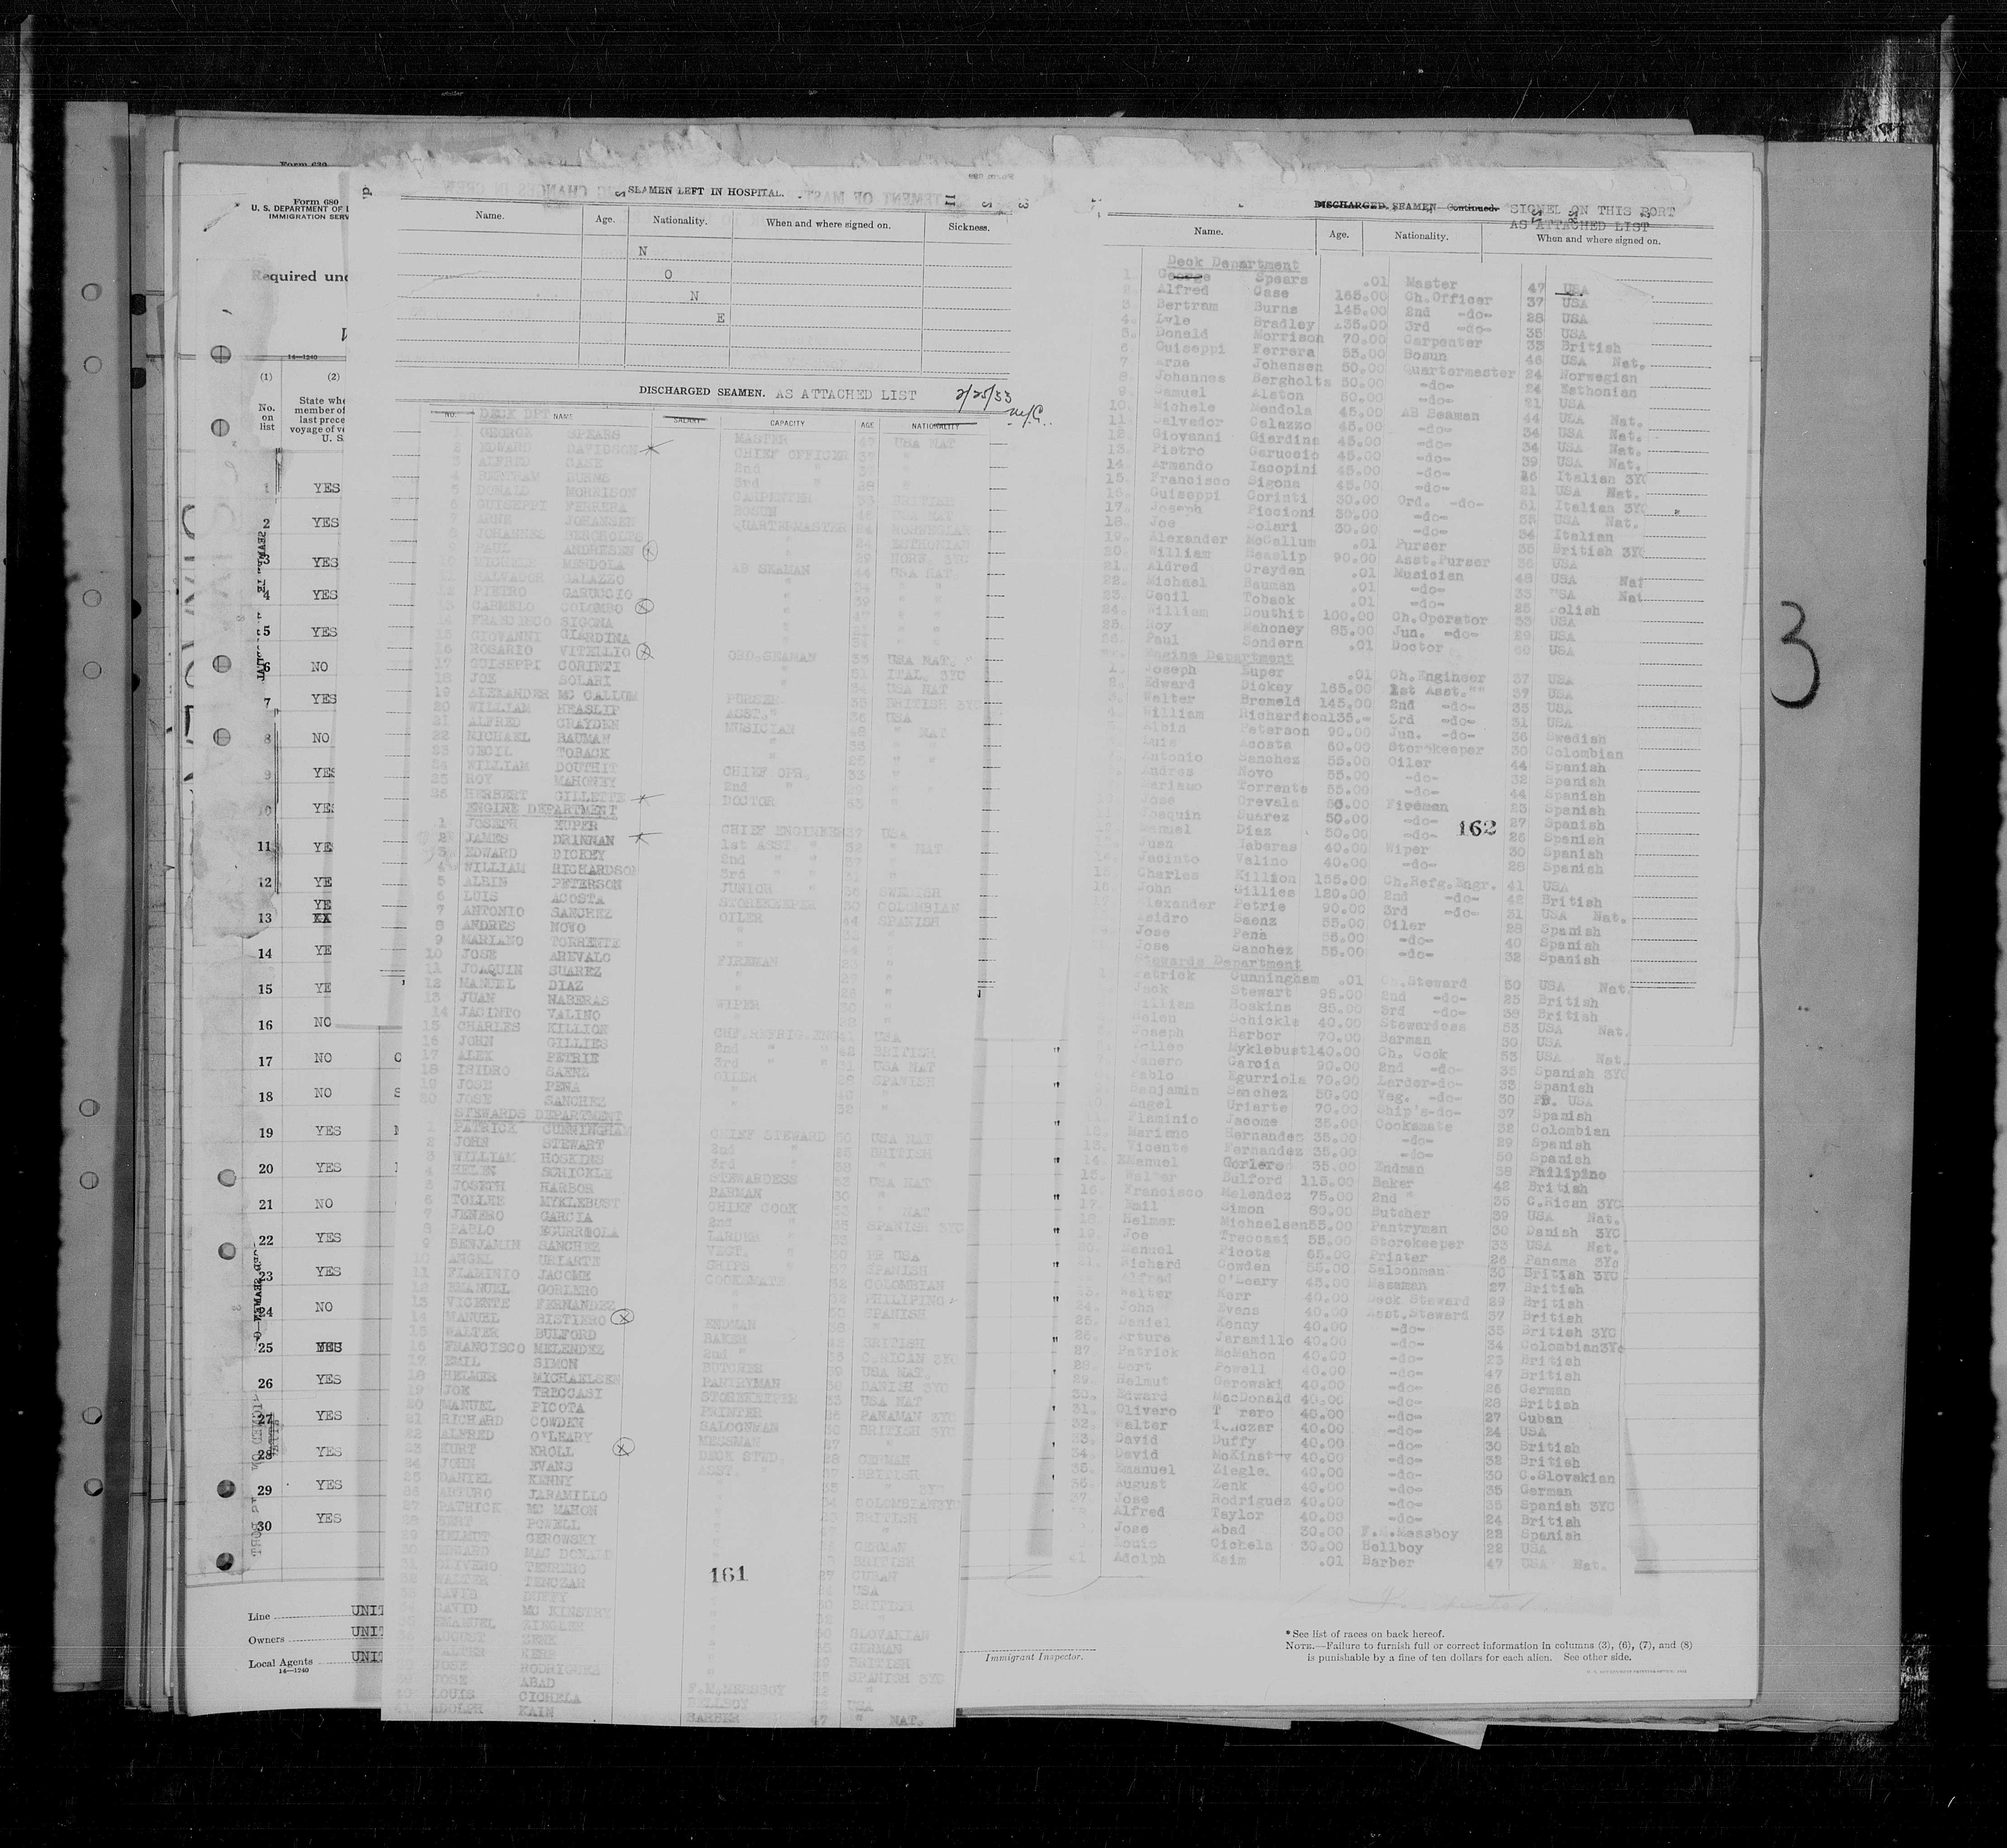 Form 680
U. S. DEPARTMENT OF
IMMIGRATION SERV
Required und
14—1240
(1) (2)
No. on list
State whe
member of
last prece
voyage of ve
U. S.
1 YES
2 YES
3 YES
4 YES
5 YES
6 NO
7 YES
8 NO
9 YES
10 YES
11 YE
12 YE
13 YE
14 YE
15 YE
16 NO
17 NO
18 NO
19 YES
20 YES
21 NO
22 YES
23 YES
24 NO
25 YES
26 YES
27 YES
28 YES
29 YES
30 YES
Line UNIT
Owners UNIT
Local Agents UNIT
14—1240
SEAMEN LEFT IN HOSPITAL.
Name. Age. Nationality. When and where signed on. Sickness.
N
O
N
E
DISCHARGED SEAMEN. AS ATTACHED LIST 2/25/33
NO. NAME SALARY CAPACITY AGE NATIONALITY
DECK DPT
1 GEORGE SPEARS MASTER 47 USA NAT
2 EDWARD DAVIDSON CHIEF OFFICER 37 "
3 ALFRED CASE 2nd " 37 "
4 BERTRAM BURNS 3rd " 28 "
5 DONALD MORRISON CARPENTER 33 BRITISH
6 GUISEPPI FERRERA BOSUN 46 USA NAT
7 ARNE JOHANSEN QUARTERMASTER 24 NORWEGIAN
8 JOHANNES BERGHOLTS " 24 ESTHONIAN
9 PAUL ANDRESEN " 29 NORG. 3YC
10 MICHELE MENDOLA AB SEAMAN 44 USA NAT
11 SALVADOR GALAZZO " 34 " "
12 PIETRO GARUCCIO " 39 " "
13 CARMELO COLOMBO " "
14 FRANCISCO SIGONA " 21 " "
15 GIOVANNI GIARDINA " 34 " "
16 ROSARIO VITELLIO ORD. SEAMAN 35 USA NAT.
17 GUISEPPI CORINTI " 51 ITAL. 3YC
18 JOE SOLARI " 34 USA NAT
19 ALEXANDER MC CALLUM PURSER 35 BRITISH 3YC
20 WILLIAM HEASLIP ASST. " 36 USA
21 ALFRED GRAYDEN MUSICIAN 48 " NAT
22 MICHAEL BAUMAN " 33 " "
23 CECIL TOBACK " 25 "
24 WILLIAM DOUTHIT CHIEF OPR. 33 "
25 ROY MAHONEY 2nd " 29 "
26 HERBERT GILLETTE DOCTOR 53 "
ENGINE DEPARTMENT
1 JOSEPH KUPER CHIEF ENGINEER 37 USA
2 JAMES DRINNAN 1st ASST " 52 " NAT
3 EDWARD DICKEY 2nd " 37 "
4 WILLIAM RICHARDSON 3rd " 31 "
5 ALBIN PETERSON JUNIOR " 36 SWEDISH
6 LUIS ACOSTA STOREKEEPER 30 COLOMBIAN
7 ANTONIO SANCHEZ OILER 44 SPANISH
8 ANDRES NOVO " 32 "
9 MARIANO TORRENTE " 44 "
10 JOSE AREVALO FIREMAN 23 "
11 JOAQUIN SUAREZ " 27 "
12 MANUEL DIAZ " 26 "
13 JUAN NABERAS WIPER 30 "
14 JACINTO VALINO " 28 "
15 CHARLES KILLION CHF.REFRIG.ENG 41 USA
16 JOHN GILLIES 2nd " " 42 BRITISH
17 ALEX PETRIE 3rd " " 31 USA NAT
18 ISIDRO SAENZ OILER 28 SPANISH
19 JOSE PENA " 40 "
20 JOSE SANCHEZ " 32 "
STEWARDS DEPARTMENT
1 PATRICK CUNNINGHAM CHIEF STEWARD 50 USA NAT
2 JOHN STEWART 2nd " 25 BRITISH
3 WILLIAM HOSKINS 3rd " 38 "
4 HELEN SCHICKLE STEWARDESS 53 USA NAT
5 JOSETH HARBOR BARMAN 30 "
6 TOLLEE MYKLEBUST CHIEF COOK 53 " NAT
7 JENERO GARCIA 2nd " 35 SPANISH 3YC
8 PABLO EGURRIOLA LARDER " 33 "
9 BENJAMIN SANCHEZ VEGT. " PR USA
10 ANGEL URIARTE SHIPS " 37 SPANISH
11 FLAMINIO JACOME COOKSMATE 32 COLOMBIAN
12 EMANUEL GORLERO " PHILIPINO
13 VICENTE FERNANDEZ " 50 SPANISH
14 MANUEL BISTIERO ENDMAN "
15 WALTER BULFORD BAKER 42 BRITISH
16 FRANCISCO MELENDEZ 2nd " 35 C.RICAN 3YC
17 EMIL SIMON BUTCHER 39 USA NAT.
18 HELMER MICHAELSEN PANTRYMAN 30 DANISH 3YC
19 JOE TRECCASI STOREKEEPER 33 USA NAT
20 MANUEL PICOTA PRINTER 26 PANAMAN 3YC
21 RICHARD COWDEN SALOONMAN 30 BRITISH 3YC
22 ALFRED O'LEARY MESSMAN 27 "
23 KURT KROLL DECK STWD. 28 GERMAN
24 JOHN EVANS ASST. " 37 BRITISH
25 DANIEL KENNY " 35 " 3YC
26 ARTURO JARAMILLO " 34 COLOMBIAN3YC
27 PATRICK MC MAHON " 23 BRITISH
28 BERT POWELL " 47 "
29 HELMUT GEROWSKI " 26 GERMAN
30 EDWARD MAC DONALD " 28 BRITISH
31 OLIVERO TERRERO " 27 CUBAN
32 WALTER TENCZAR " 24 USA
33 DAVID DUFFY " 30 BRITISH
34 DAVID MC KINSTRY " 32 "
35 EMANUEL ZIEGLER " 30 SLOVAKIAN
36 AUGUST ZENK " 35 GERMAN
WALTER KERR " 29 BRITISH
JOSE RODRIGUEZ " 35 SPANISH 3YC
JOSE ABAD F.M.MESSBOY 22 "
40 LOUIS CICHELA BELLBOY USA
41 ADOLPH KAIM BARBER 47 " NAT.
161
DISCHARGED SEAMEN—Continued. SIGNEL ON THIS PORT
AS ATTACHED LIST
Name. Age. Nationality. When and where signed on.
Deck Department
1. George Spears .01 Master 47 USA
2. Alfred Case 165.00 Ch.Officer 37 USA
3. Bertram Burns 145.00 2nd -do- 28 USA
4. Lyle Bradley 135.00 3rd -do- 35 USA
5. Donald Morrison 70.00 Carpenter 33 British
6. Guiseppi Ferrera 55.00 Bosun 46 USA Nat.
7 Arne Johensen 50.00 Quartermaster 24 Norwegian
8. Johannes Bergholts 50.00 -do- 24 Esthonian
9. Samuel Alston 50.00 -do- 21 USA
10. Michele Mendola 45.00 AB Seamen 44 USA Nat.
11. Salvador Calazzo 45.00 -do- 34 USA Nat.
12. Giovanni Giardina 45.00 -do- 34 USA Nat.
13. Pietro Caruccio 45.00 -do- 39 USA Nat.
14. Armando Iacopini 45.00 -do- 26 Italian 3YC
15. Francisco Sigona 45.00 -do- 21 USA Nat.
16. Guiseppi Corinti 30.00 Ord. -do- 51 Italian 3YC
17. Joseph Piccioni 30.00 -do- 35 USA Nat.
18. Joe Solari 30.00 -do- 34 Italian
19. Alexander McCallum .01 Purser 35 British 3YC
20. William Heaslip 90.00 Asst.Purser 36 USA
21. Aldred Crayden .01 Musician 48 USA Nat
22. Michael Bauman .01 -do- 33 USA Nat
23. Cecil Toback .01 -do- 25 Polish
24. William Douthit 100.00 Ch.Operator 33 USA
25. Roy Mahoney 85.00 Jun. -do- 29 USA
26. Paul Sondern .01 Doctor 60 USA
Engine Department
1. Joseph Kuper .01 Ch.Engineer 37 USA
2. Edward Dickey 165.00 1st Asst."" 37 USA
3. Walter Bremeld 145.00 2nd -do- 35 USA
William Richardson135.- 3rd -do- 31 USA
Albin Peterson 90.00 Jun. -do- 36 Swedish
Luis Acosta 60.00 Storekeeper 30 Colombian
Antonio Sanchez 55.00 Oiler 44 Spanish
Andres Novo 55.00 -do- 32 Spanish
Mariamo Torrente 55.00 -do- 44 Spanish
Jose Orevala 50.00 Fireman 23 Spanish
Joaquin Suarez 50.00 -do- 27 Spanish
Manuel Diaz 50.00 -do- 26 Spanish
Juan Naberas 40.00 Wiper 30 Spanish
14. Jacinto Valino 40.00 -do- 28 Spanish
15. Charles Killion 155.00 Ch.Refg.Engr. 41 USA
16. John Gillies 120.00 2nd -do- 42 British
Alexander Petrie 90.00 3rd -do- 31 USA Nat.
Isidro Saenz 55.00 Oiler 28 Spanish
Jose Pena 55.00 -do- 40 Spanish
Jose Sanchez 55.00 -do- 32 Spanish
Stewards Department
Patrick Cunningham .01 Ch.Steward 50 USA Nat.
Jack Stewart 95.00 2nd -do- 25 British
William Hoskins 85.00 3rd -do- 38 British
Helen Schickle 40.00 Stewardess 53 USA Nat.
Joseph Harbor 70.00 Barman 30 USA
Tolles Myklebust140.00 Ch. Cook 53 USA Nat.
Janero Garcia 90.00 2nd -do- 35 Spanish 3YC
Pablo Egurriola 70.00 Larder-do- 33 Spanish
Benjamin Sanchez 50.00 Veg. -do- 30 PR. USA
Angel Uriarte 70.00 Ship's-do- 37 Spanish
Flaminio Jacome 35.00 Cooksmate 32 Colombian
12. Mariano Hernandez 35.00 -do- 29 Spanish
13. Vicente Fernandez 35.00 -do- 50 Spanish
14. EManuel Gorlero 35.00 Endman 38 Philipino
15. Walter Bulford 115.00 Baker 42 British
16. Francisco Melendez 75.00 2nd " 35 C.Rican 3YC
17. Emil Simon 80.00 Butcher 39 USA Nat.
18. Helmer Michaelsen55.00 Pantryman 30 Danish 3YC
19. Joe Treccasi 55.00 Storekeeper 33 USA Nat.
20. Manuel Picota 65.00 Printer 26 Panama 3Yc
21. Richard Cowden 55.00 Saloonman 30 British 3YC
Alfred O'Leary 45.00 Messman 27 British
23. Walter Kerr 40.00 Deck Steward 29 British
24. John Evans 40.00 Asst.Steward 37 British
25. Daniel Kenny 40.00 -do- 35 British 3YC
26. Arturo Jaramillo 40.00 -do- 34 Colombian3Yc
27 Patrick McMahon 40.00 -do- 23 British
28. Bert Powell 40.00 -do- 47 British
29. Helmut Gerowski 40.00 -do- 26 German
30. Edward MacDonald 40.00 -do- 28 British
31. Olivero T rero 40.00 -do- 27 Cuban
32. Walter Tenczar 40.00 -do- 24 USA
33. David Duffy 40.00 -do- 30 British
34. David McKinstry 40.00 -do- 32 British
35. Emanuel Ziegle. 40.00 -do- 30 C.Slovakian
36. August Zenk 40.00 -do- 35 German
37 Jose Rodriguez 40.00 -do- 35 Spanish 3YC
Alfred Taylor 40.00 -do- 24 British
Jose Abad 30.00 F.M.Messboy 22 Spanish
Louis Cichela 30.00 Bellboy 22 USA
41 Adolph Kaim .01 Barber 47 USA Nat.
162
Immigrant Inspector.
* See list of races on back hereof.
NOTE.—Failure to furnish full or correct information in columns (3), (6), (7), and (8)
is punishable by a fine of ten dollars for each alien. See other side.
3